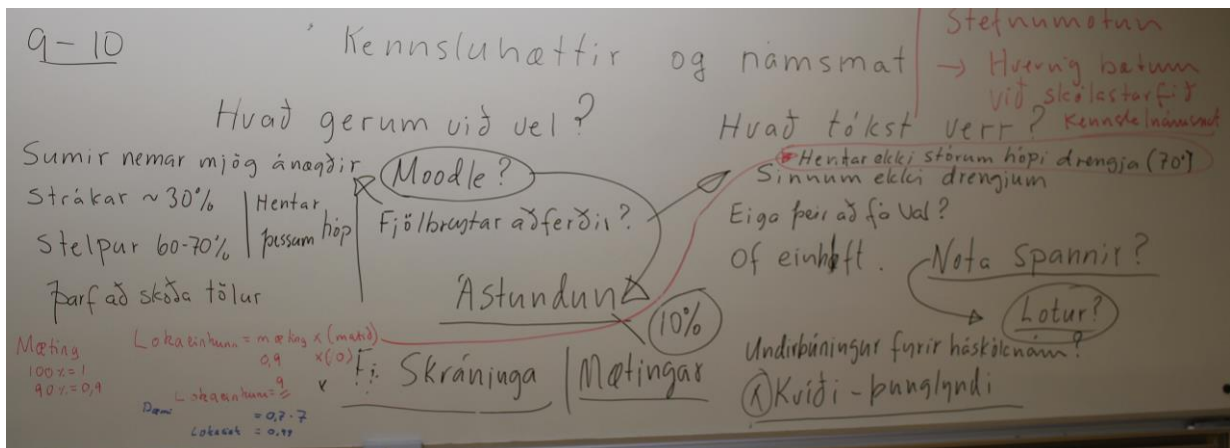 9-10
Kennsluhættir og námsmat
Stefnumótun
→ Hvernig bætum
við skólastarfið
Hvað gerum við vel?
Sumir nemar mjög ánægðir
Strákar ~ 30%
Stelpur 60-70%
Hentar
þessum hóp
Þarf að skoða tölur
Moodle?
Fjölbreyttar aðferðir?
Ástundun
10%
Fj. Skráninga
Mætingar
Hvað tókst verr?
Hentar ekki stórum hópi drengja (70%)
Sinnum ekki drengjum
Eiga þeir að fá val?
Of einhæft.
Nota spannir?
Lotur?
Undirbúningur fyrir háskólanám?
Kvíði - þunglyndi
Mæting
100% = 1
90% = 0,9
Lokaeinkunn = mæting x (matið)
0,9 x (10)
Lokaeinkunn = 9
Dæmi
= 0,7 · 7